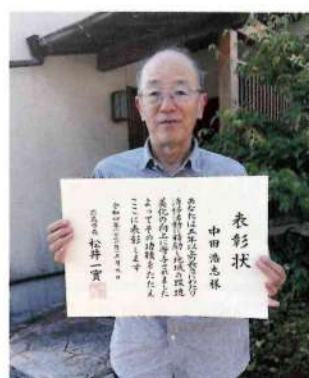 表彰状
中田浩志様
あなたは五年以上の長きにわたり
清掃活動に精励し地域の環境
美化の向上に寄与されました
よってその功績をたたえ
ここに表彰します
令和四年
広島市長 松井一實